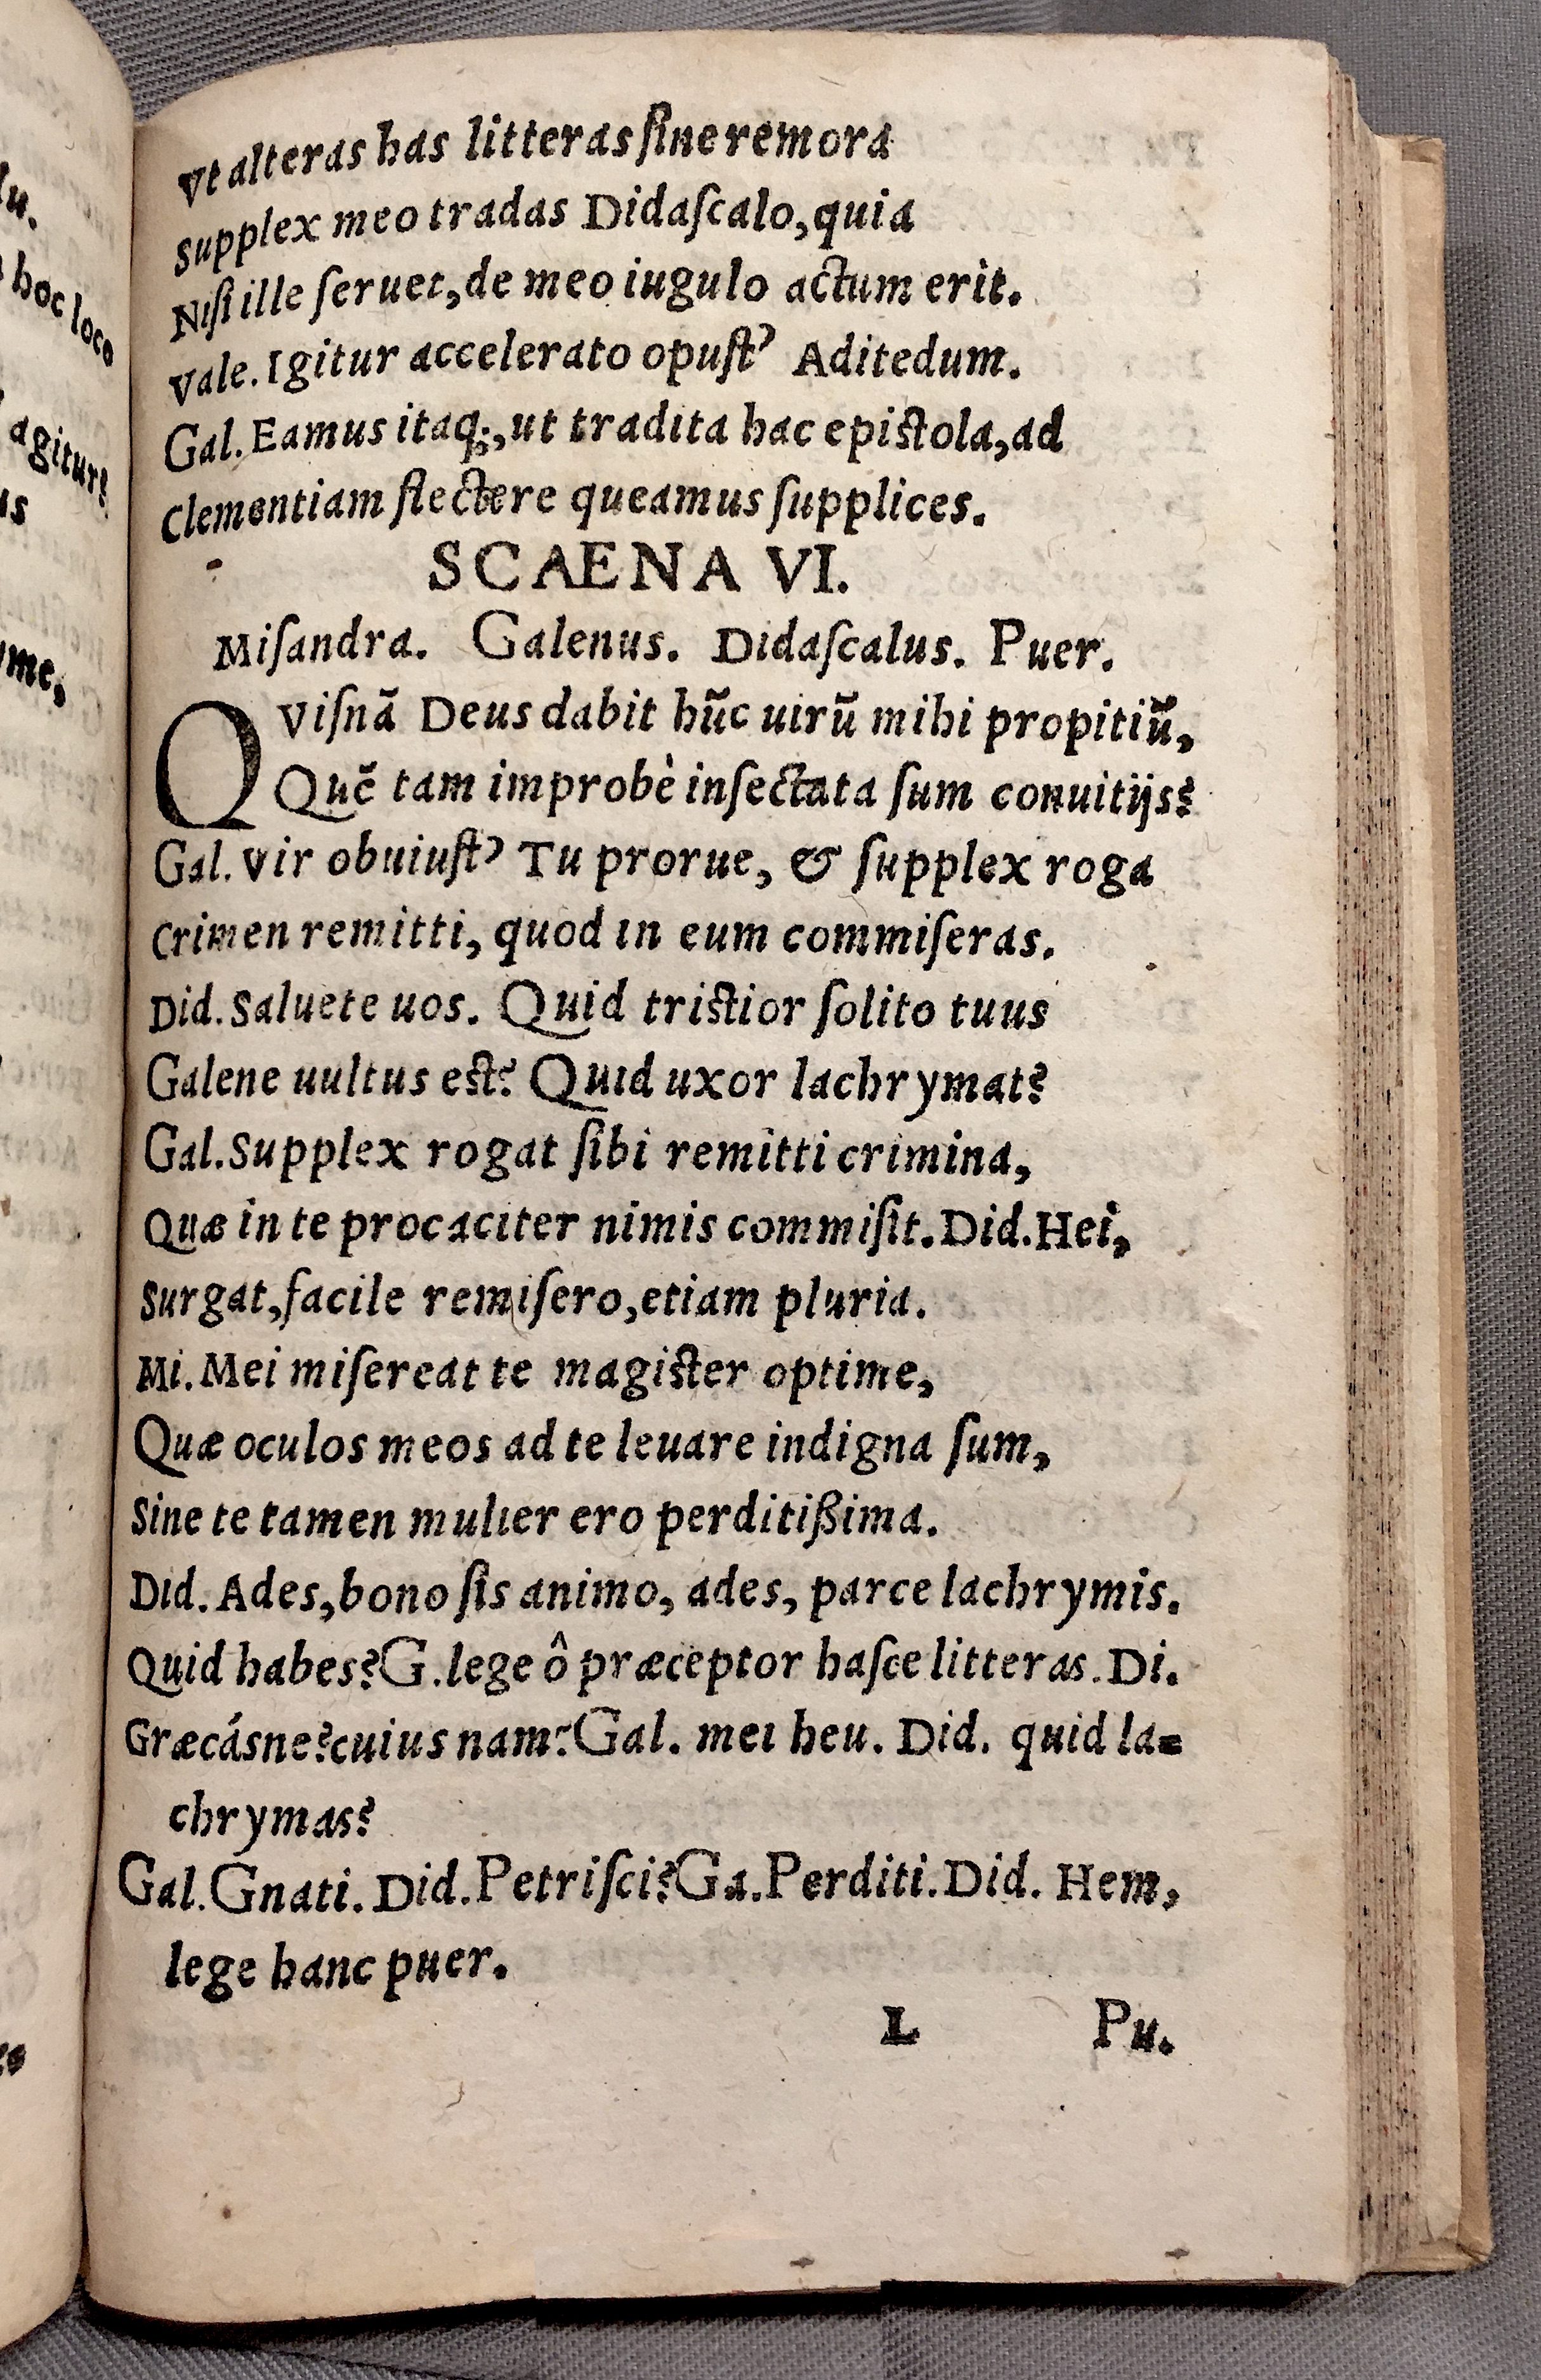 Vt alteras has litteras ſine remora
Supplex meo tradas Didaſcalo, quia
Niſi ille ſeruet, de meo iugulo actum erit.
Vale. Igitur accelerato opuſt? Aditedum.
Gal. Eamus itaq;, ut tradita hac epistola, ad
Clementiam flectere queamus ſupplices.
SCAENA VI.
Miſandra. Galenus. Didaſcalus. Puer.
QViſnã Deus dabit hũc uirũ mihi propitiũ,
Quẽ tam improbè inſectata ſum conuitijs?
Gal. Vir obuiuſt? Tu prorue, & ſupplex roga
Crimen remitti, quod in eum commiſeras.
Did. Saluete uos. Quid tristior ſolito tuus
Galene uultus est? Quid uxor lachrymat?
Gal. Supplex rogat ſibi remitti crimina,
Quæ in te procaciter nimis commiſit. Did. Hei,
Surgat, facile remiſero, etiam pluria.
Mi. Mei miſereat te magister optime,
Quæ oculos meos ad te leuare indigna ſum,
Sine te tamen mulier ero perditißima.
Did. Ades, bono ſis animo, ades, parce lachrymis.
Quid habes? G. lege ô præceptor haſce litteras. Di.
Græcásne? cuius nam? Gal. mei heu. Did. quid la=
chrymas?
Gal. Gnati. Did. Petriſci? Ga. Perditi. Did. Hem,
lege hanc puer.
L Pu.
lu.
hoc loco
agitur?
us
me,